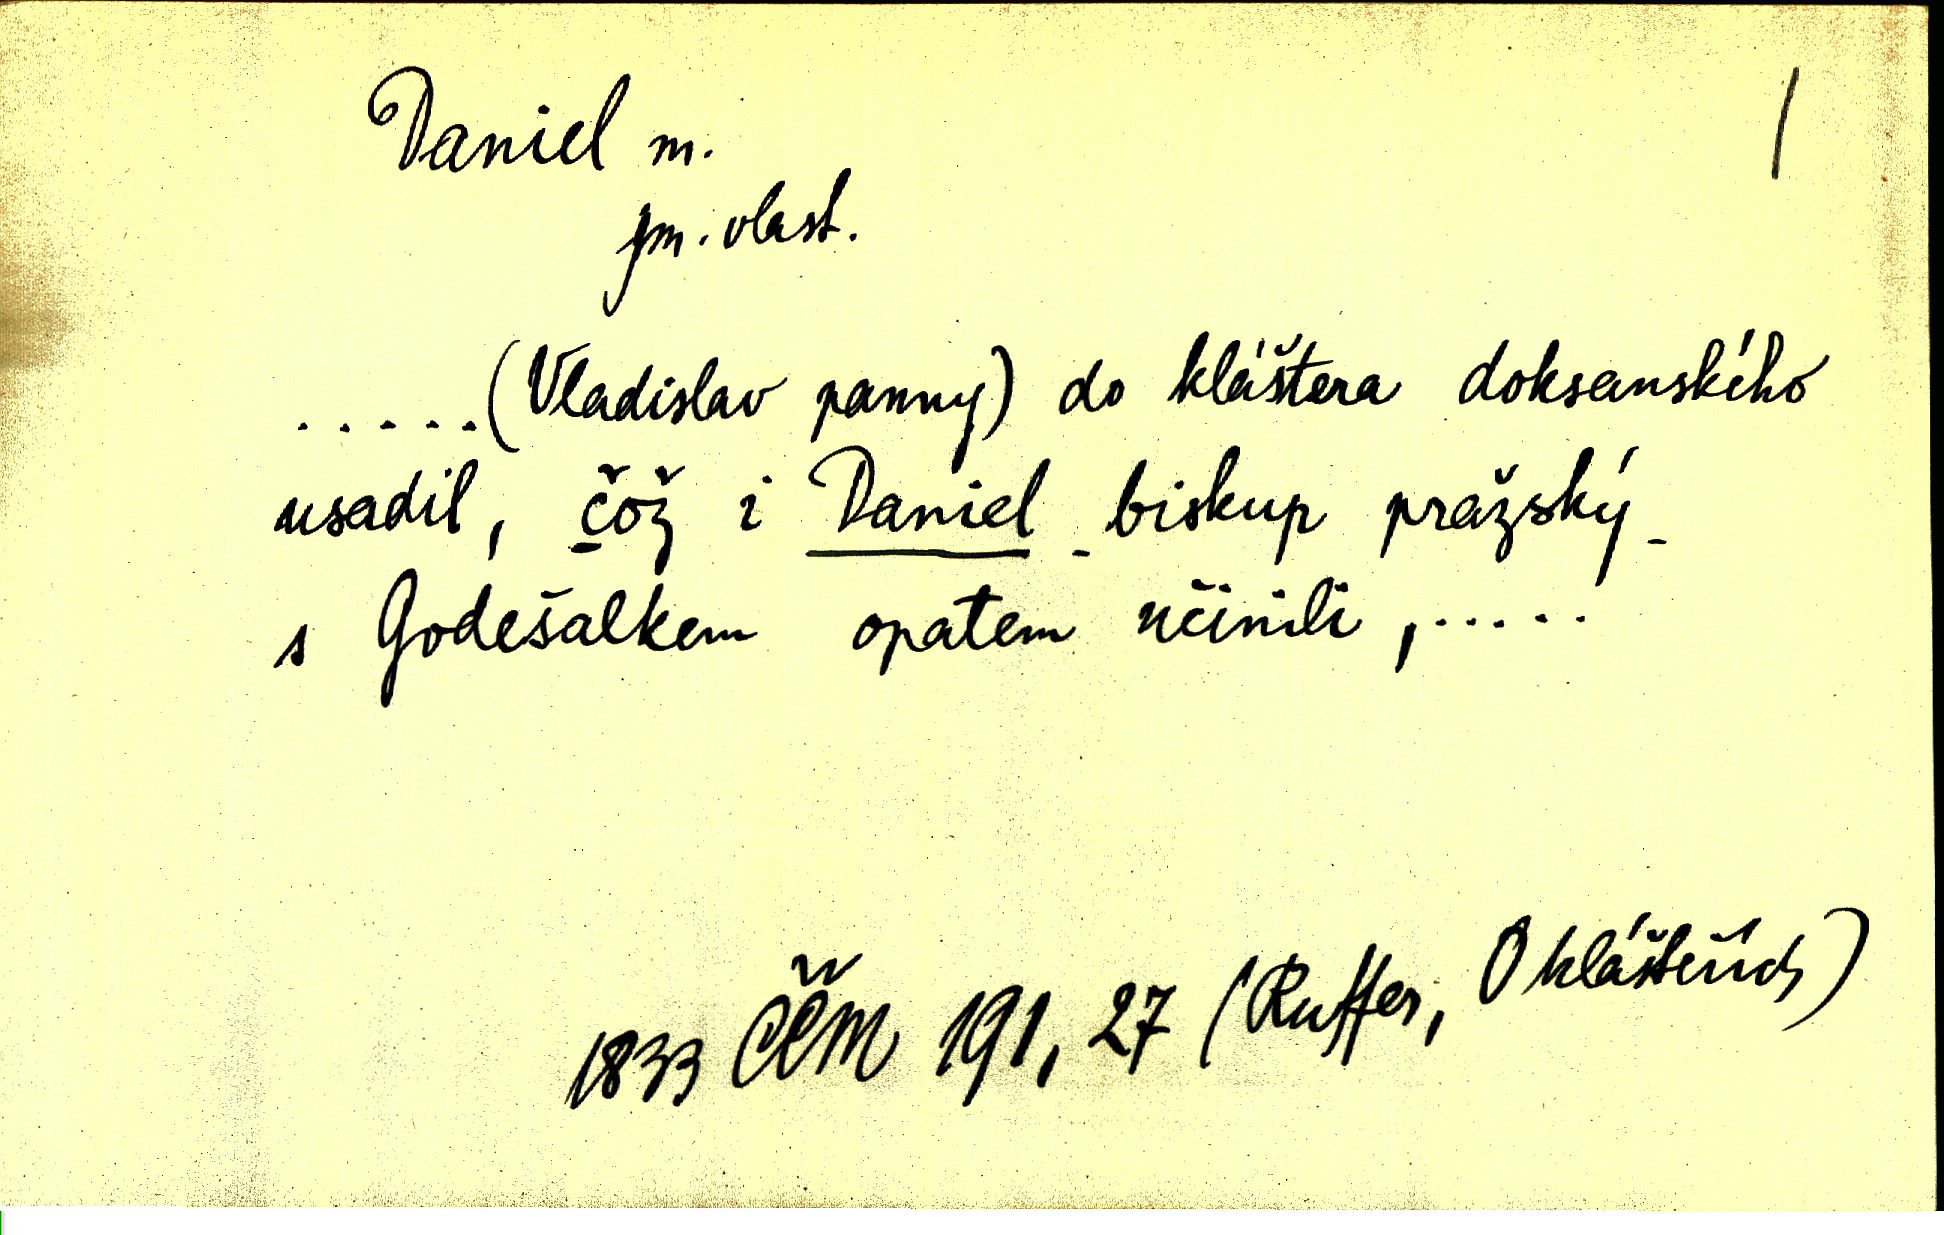 Daniel m. /
jm. vlast.
.....(Vladislav panny) do kláštera doksanského
usadil, čož i Daniel biskup pražský
s Godešalkem opatem učinili,.....
1833 ČČM 191, 27 (Ruffer, O klášteřích)